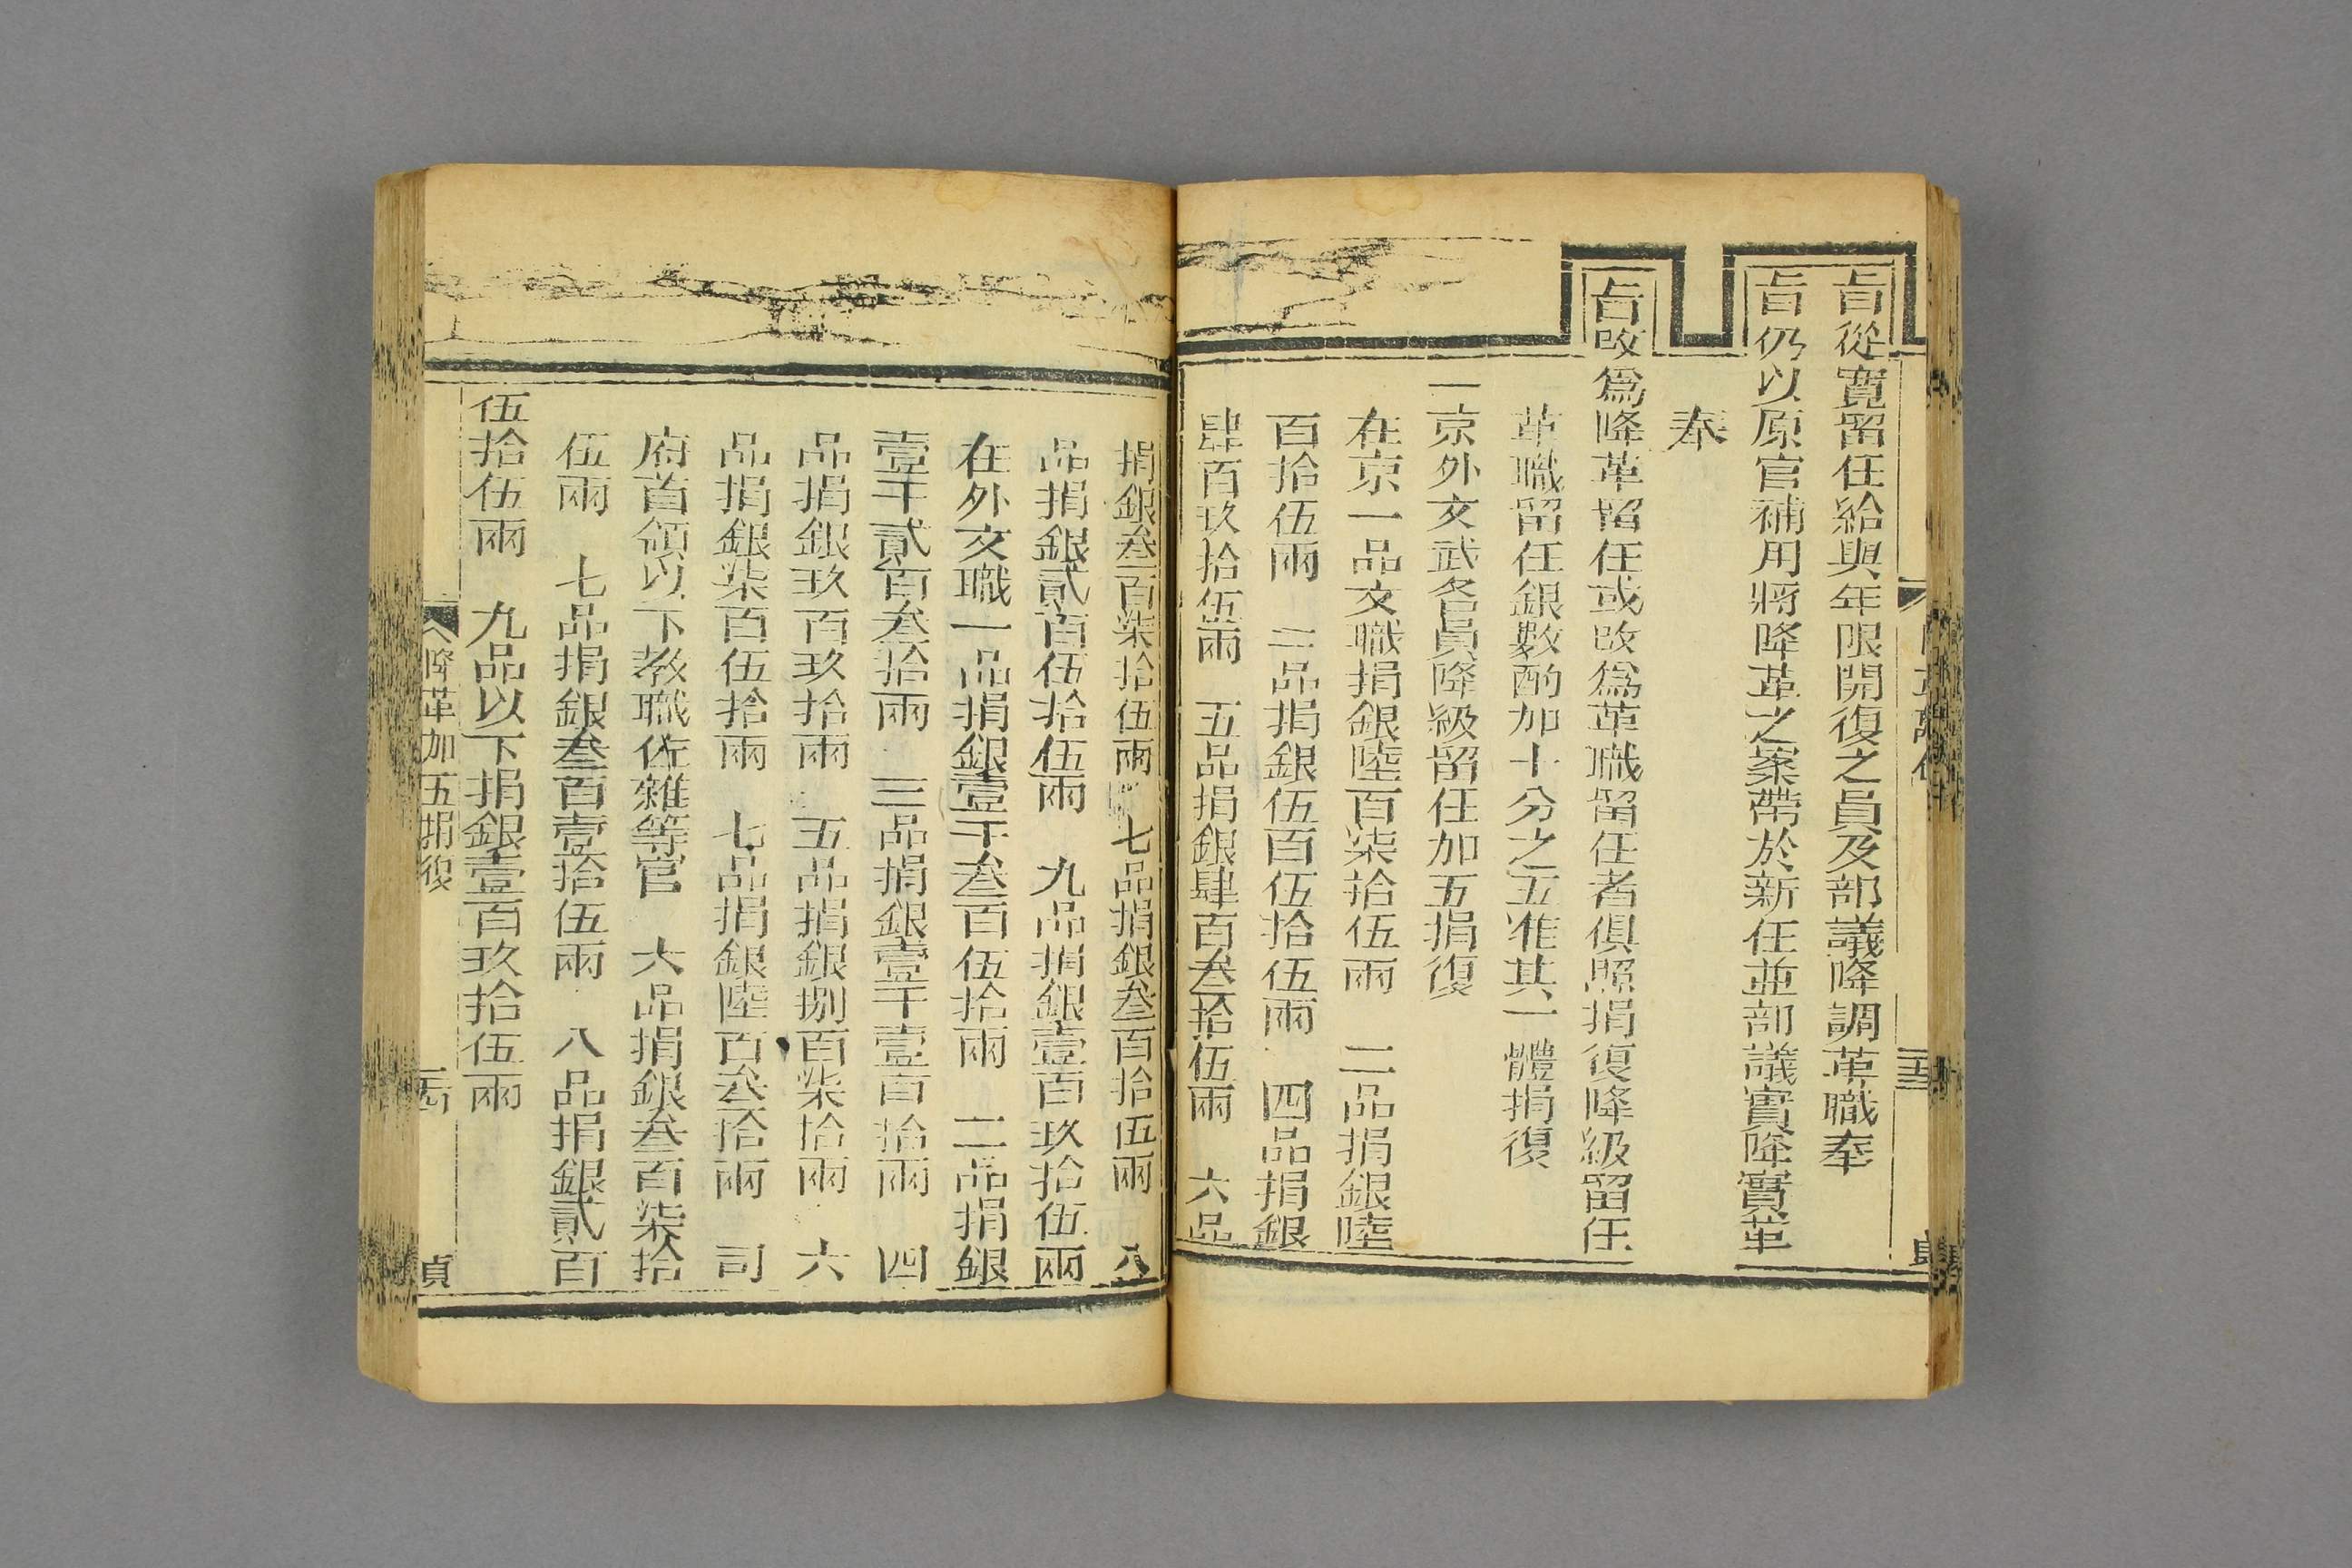 旨從寬留任給與年限開復之員及部議降調革職奉
旨仍以原官補用將降革之案帶於新任並部議實降實革
奉
旨改爲降革留任或改爲革職留任者俱照捐復降級留任
革職留任銀數酌加十分之五准其一體捐復
一京外文武各員降級留任加五捐復
在京一品文職捐銀陸百柒拾伍兩　二品捐銀陸
百拾伍兩　三品捐銀伍百伍拾伍兩　四品捐銀
肆百玖拾伍兩　五品捐銀肆百叁拾伍兩　六品
捐銀叁百柒拾伍兩　七品捐銀叁百拾伍兩　八
品捐銀貳百伍拾伍兩　九品捐銀壹百玖拾伍兩
在外文職一品捐銀壹千叁百伍拾兩　二品捐銀
壹千貳百叁拾兩　三品捐銀壹千壹百拾兩　四
品捐銀玖百玖拾兩　五品捐銀捌百柒拾兩　六
品捐銀柒百伍拾兩　七品捐銀陸百叁拾兩　司
府首領以下教職佐雜等官　六品捐銀叁百柒拾
伍兩　七品捐銀叁百壹拾伍兩　八品捐銀貳百
伍拾伍兩　九品以下捐銀壹百玖拾伍兩
降革加五捐復　二四　貞